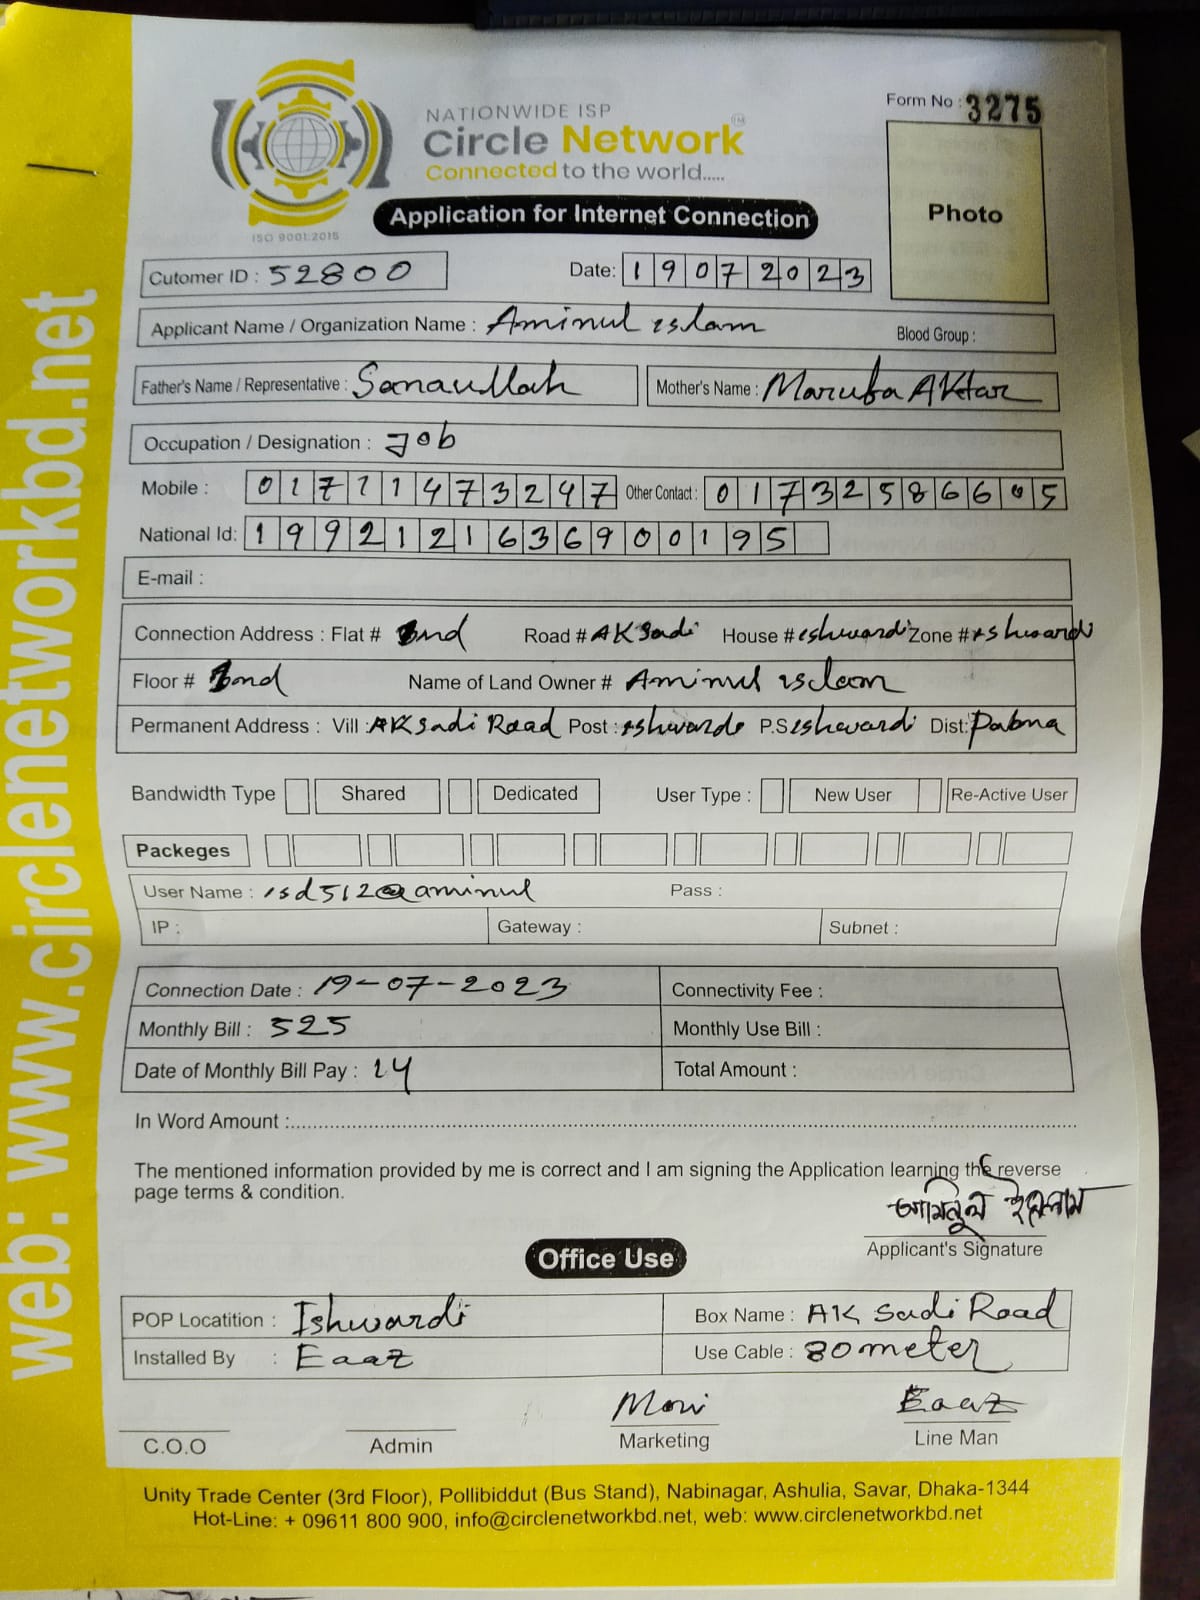 NATIONWIDE ISP
Circle Network
TM
Connected to the world.....
ISO 9001:2015
Form No : 3275
Photo
Application for Internet Connection
Cutomer ID : 52800
Date: 19072023
Applicant Name / Organization Name : Aminul islam Blood Group :
Father's Name / Representative : Sanaullah Mother's Name : Marufa Aktar
Occupation / Designation : Job
Mobile : 01711473247 Other Contact : 01732586605
National Id: 19921216369000195
E-mail :
Connection Address : Flat # 2nd Road # AK Sadi House # ishwardi Zone # ishwardi
Floor # 2nd Name of Land Owner # Aminul islam
Permanent Address : Vill : AK Sadi Road Post : ishwardi P.S ishwardi Dist: Pabna
Bandwidth Type Shared Dedicated User Type : New User Re-Active User
Packeges
User Name : isd512@aminul Pass :
IP : Gateway : Subnet :
Connection Date : 19-07-2023 Connectivity Fee :
Monthly Bill : 525 Monthly Use Bill :
Date of Monthly Bill Pay : 14 Total Amount :
In Word Amount :
The mentioned information provided by me is correct and I am signing the Application learning the reverse
page terms & condition.
আমিনুল ইসলাম
Applicant's Signature
Office Use
POP Locatition : Ishwardi Box Name : AK Sadi Road
Installed By : Eaaz Use Cable : 80 meter
Moni Eaaz
C.O.O Admin Marketing Line Man
Unity Trade Center (3rd Floor), Pollibiddut (Bus Stand), Nabinagar, Ashulia, Savar, Dhaka-1344
Hot-Line: + 09611 800 900, info@circlenetworkbd.net, web: www.circlenetworkbd.net
web: www.circlenetworkbd.net